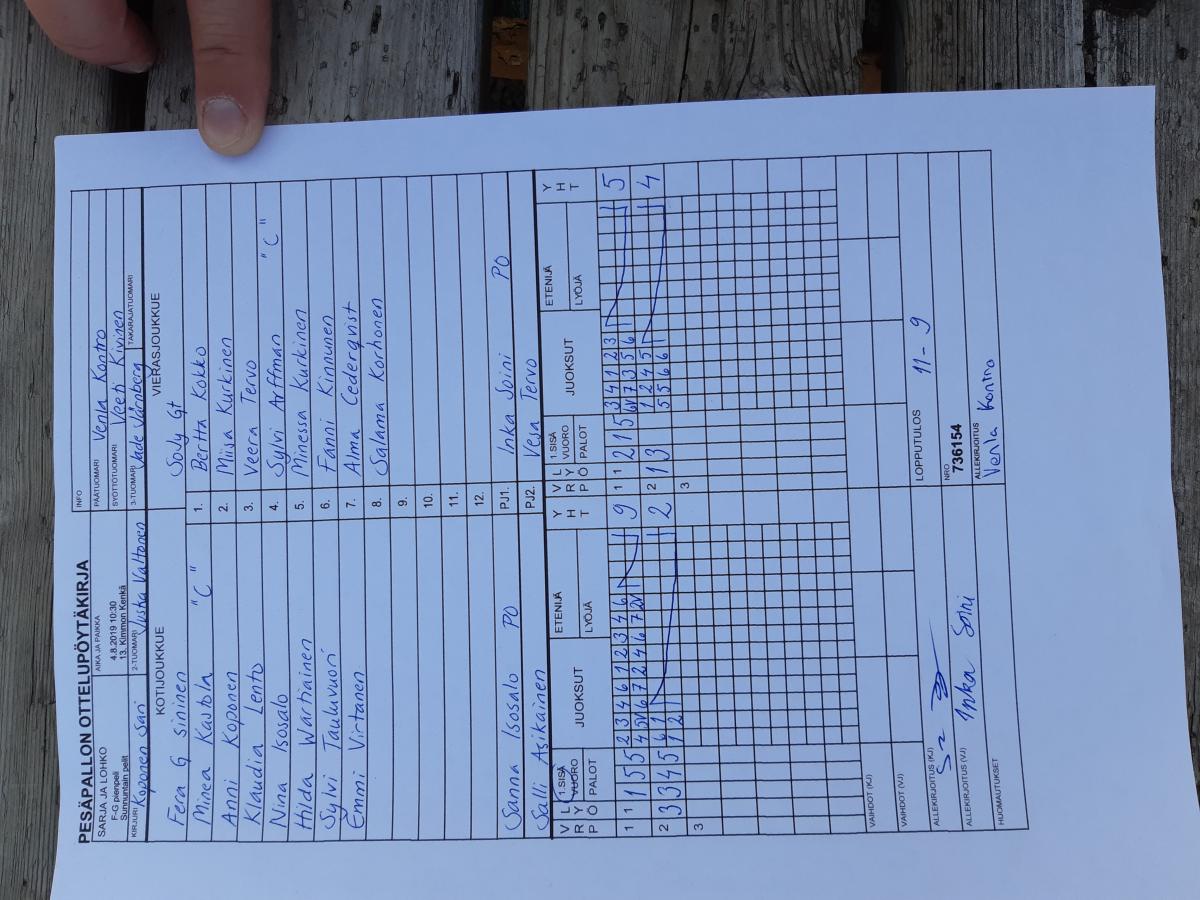 PESÄPALLON OTTELUPÖYTÄKIRJA
SARJA JA LOHKO AIKA JA PAIKKA INFO
F-G pienpeli 4.8.2019 10:30 PÄÄTUOMARI Venla Kontro
Sunnuntain pelit 13. Kimmon Kenkä SYÖTTÖTUOMARI Veeti Kivinen
KIRJURI Koponen Sari 2-TUOMARI Juska Valtonen 3-TUOMARI Jade Järnberg TAKARAJATUOMARI
KOTIJOUKKUE VIERASJOUKKUE
Fera G sininen SoJy Gt
Minea Kastola "C" 1. Bertta Kokko
Anni Koponen 2. Miisa Kurkinen
Klaudia Lento 3. Veera Tervo
Nina Isosalo 4. Sylvi Arffman "C"
Hilda Wartiainen 5. Minessa Kurkinen
Sylvi Tauluvuori 6. Fanni Kinnunen
Emmi Virtanen 7. Alma Cederqvist
8. Salama Korhonen
9.
10.
11.
12.
Sanna Isosalo PO PJ1. Inka Soini PO
Salli Asikainen PJ2. Vesa Tervo
V L 1.SISÄ JUOKSUT ETENIJÄ Y V L 1.SISÄ JUOKSUT ETENIJÄ Y
R Y VUORO H R Y VUORO H
P Ö PALOT LYÖJÄ T P Ö PALOT LYÖJÄ T
1 1 1 5 5 2 3 4 6 1 2 3 4 6 9 1 1 2 1 5 3 4 1 2 3 5
2 3 3 4 5 6 1 2 2 1 3 1 2 4 5 4
1 2 5 5 6 6
3 3
VAIHDOT (KJ)
VAIHDOT (VJ)
ALLEKIRJOITUS (KJ) LOPPUTULOS 11-9
ALLEKIRJOITUS (VJ) Inka Soini NRO 736154
HUOMAUTUKSET ALLEKIRJOITUS Venla Kontro